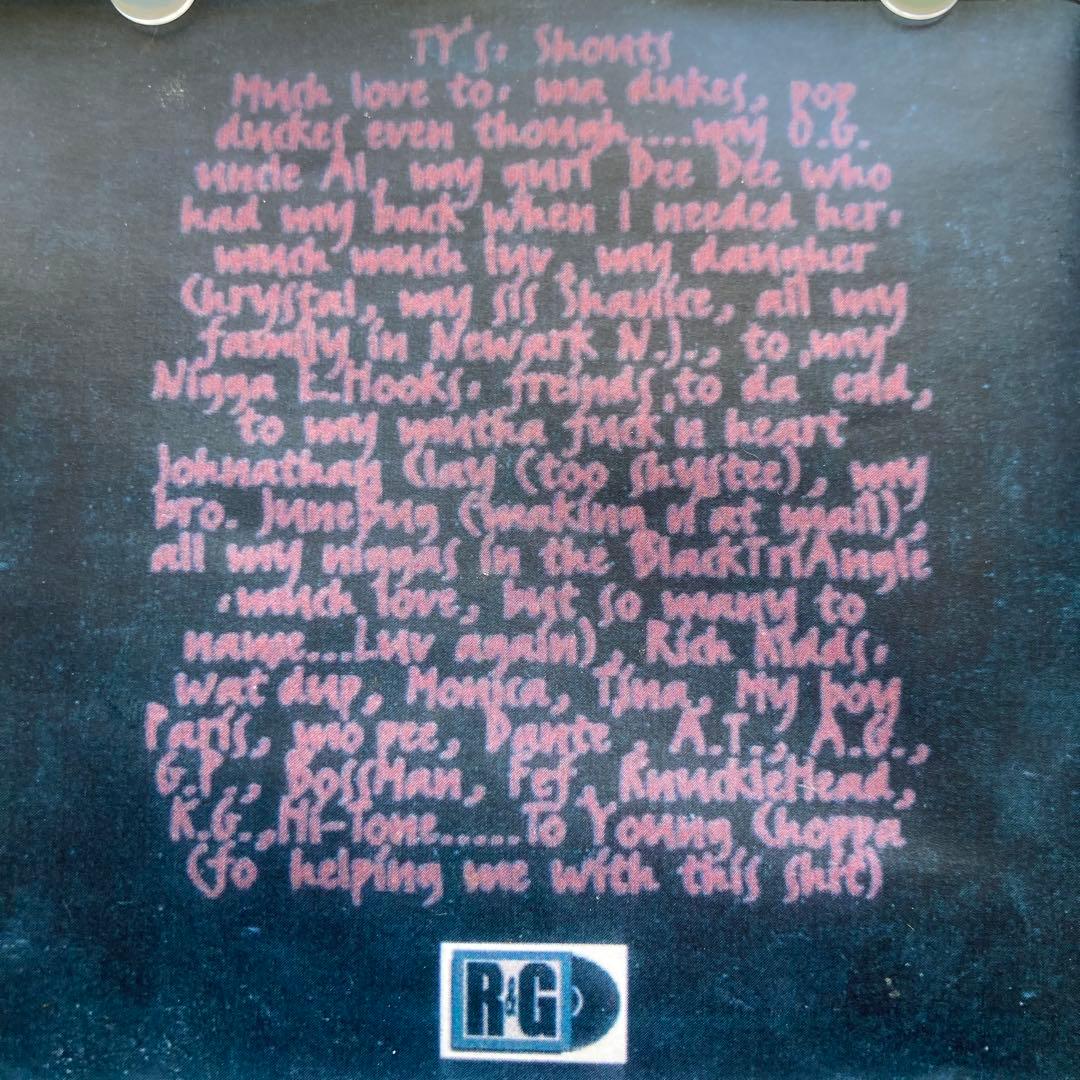 TY's: Shouts
Much love to: ma dukes, pop
duckes even though....my O.G.
uncle Al, my gurl Dee Dee who
had my back when I needed her:
much much luv, my daugher
Chrystal, my sis Shanice, all my
family in Newark N.J., to my
Nigga E.Hooks: freinds to da end,
to my mutha fuck'n heart
Johnathan Clay (too shystee), my
bro. JuneBug (making it at mail),
all my niggas in the BlackTriAngle
:much love, but so many to
name....Luv again), Rich Kidds:
wat dup, Monica, Tina, My boy
Paris, mo pee, Dante, A.T., A.G.,
G.P., BossMan, Fef, KnuckleHead,
K.G.,Hi-Tone.....To Young Choppa
(fo helping me with this shit)
R&G